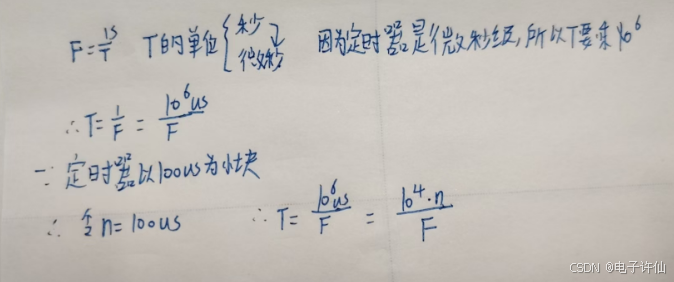 F=1s/T T的单位{秒 微秒 因为定时器是微秒级,所以T要乘10^6
∴T=1/F=10^6us/F
∵定时器以100us为小块
∴令n=100us ∴T=10^6us/F=10^4·n/F
CSDN @电子许仙